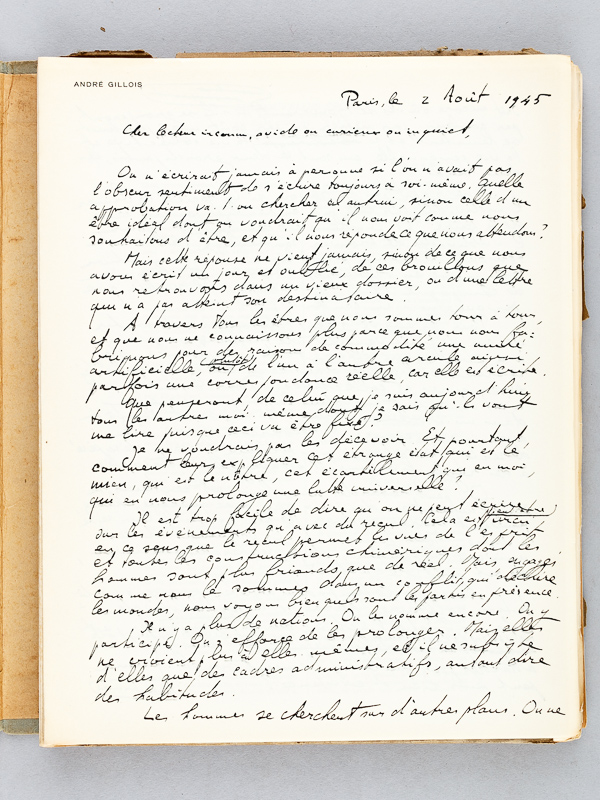 ANDRÉ GILLOIS
Paris, le 2 Août 1945
Cher lecteur inconnu, avide ou curieux ou inquiet,
On n'écrirait jamais à personne si l'on n'avait pas
l'obscur sentiment de s'écrire toujours à soi-même. Quelle
approbation va-t-on chercher en autrui, sinon celle d'un
être idéal dont on voudrait qu'il nous voit comme nous
souhaitons d'être, et qu'il nous réponde ce que nous attendons ?
Mais cette réponse ne vient jamais, sinon de ce que nous
avons écrit un jour et oublié, de ces brouillons que
nous retrouvons dans un vieux dossier, ou d'une lettre
qui n'a pas atteint son destinataire.
A travers tous les êtres que nous sommes tour à tour,
et que nous ne connaissons plus parce que nous nous fa-
briquons pour des raisons de commodité une unité
artificielle, ou plutôt de l'un à l'autre circule ainsi
parfois une correspondance réelle, car elle est écrite.
Que penseront de celui que je suis aujourd'hui
tous les autres moi-même dont je sais qu'ils vont
me lire puisque ceci va être fixé ?
Je ne voudrais pas les décevoir. Et pourtant,
comment leur expliquer cet étrange état qui est le
mien, qui est le nôtre, cet écartèlement que en moi,
qui en nous prolonge une lutte universelle ?
Il est trop facile de dire qu'on ne peut écrire
sur les événements qu'avec du recul. Cela est peut-être vrai
en ce sens que le recul permet les vues de l'esprit
et toutes les constructions chimériques dont les
hommes sont plus friands que de réel. Mais, engagés
comme nous le sommes dans un conflit qui déchire
les mondes, nous voyons bien quels sont les partis en présence.
Il n'y a plus de nations. On les nomme encore. On y
participe. On s'efforce de les prolonger. Mais elles
ne vivent plus d'elles-mêmes, et il ne subsiste
d'elles que des cadres administratifs, autant dire
des habitudes.
Les hommes se cherchent sur d'autres plans. On ne